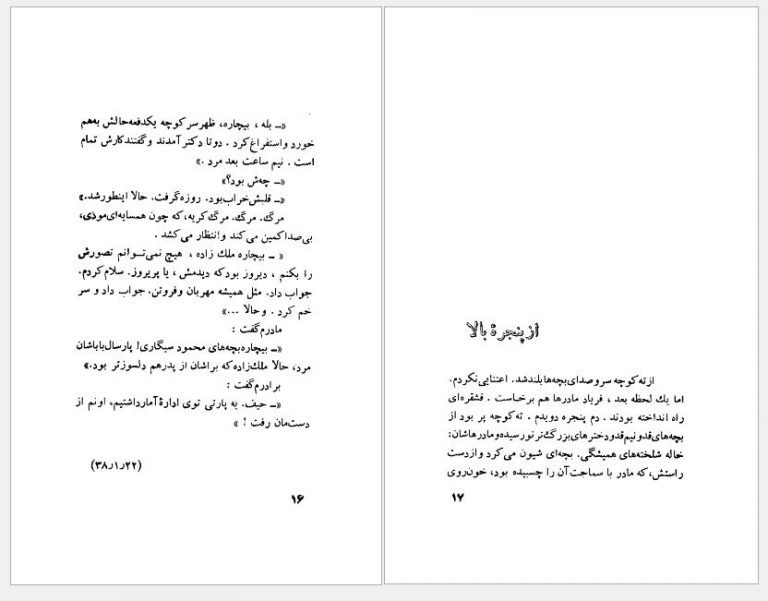 «ـ بله ، بیچاره، ظهر سر کوچه یکدفعه حالش به هم
خورد و استفراغ کرد . دو تا دکتر آمدند و گفتند کارش تمام
است . نیم ساعت بعد مرد .»
«ـ چه‌ش بود؟»
«ـ قلبش خراب بود. روزه گرفت. حالا اینطور شد.»
مرگ. مرگ. مرگ کریه، که چون همسایه‌ای موذی،
بی‌صدا کمین می‌کند و انتظار می‌کشد .
«ـ بیچاره ملك زاده ، هیچ نمی‌تــوانم تصورش
را بکنم ، دیروز بود که دیدمش ، یا پریروز. سلام کردم.
جواب داد. مثل همیشه مهربان و فروتن. جواب داد و سر
خم کرد . و حالا ...»
مادرم گفت :
«ـ بیچاره بچه‌های محمود سیگاری! پارسال باباشان
مرد، حالا ملك‌زاده که براشان از پدر هم دلسوزتر بود.»
برادرم گفت :
«ـ حیف. یه پارتی توی ادارۀ آمار داشتیم، اونم از
دست‌مان رفت ! »
(۳۸ر۱ر۲۲)
۱۶
از پنجرۀ بالا
از ته کوچه سر و صدای بچه‌ها بلند شد. اعتنایی نکردم.
اما یك لحظه بعد ، فریاد مادرها هم برخاست . قشقره‌ای
راه انداخته بودند . دم پنجره دویدم . ته کوچه پر بود از
بچه‌های قد و نیم قد و دخترهای بزرگ‌تر نورسیده و مادرهاشان:
خاله شلخته‌های همیشگی. بچه‌ای شیون می‌کرد و از دست
راستش، که مادر با سماجت آن را چسبیده بود، خون روی
۱۷